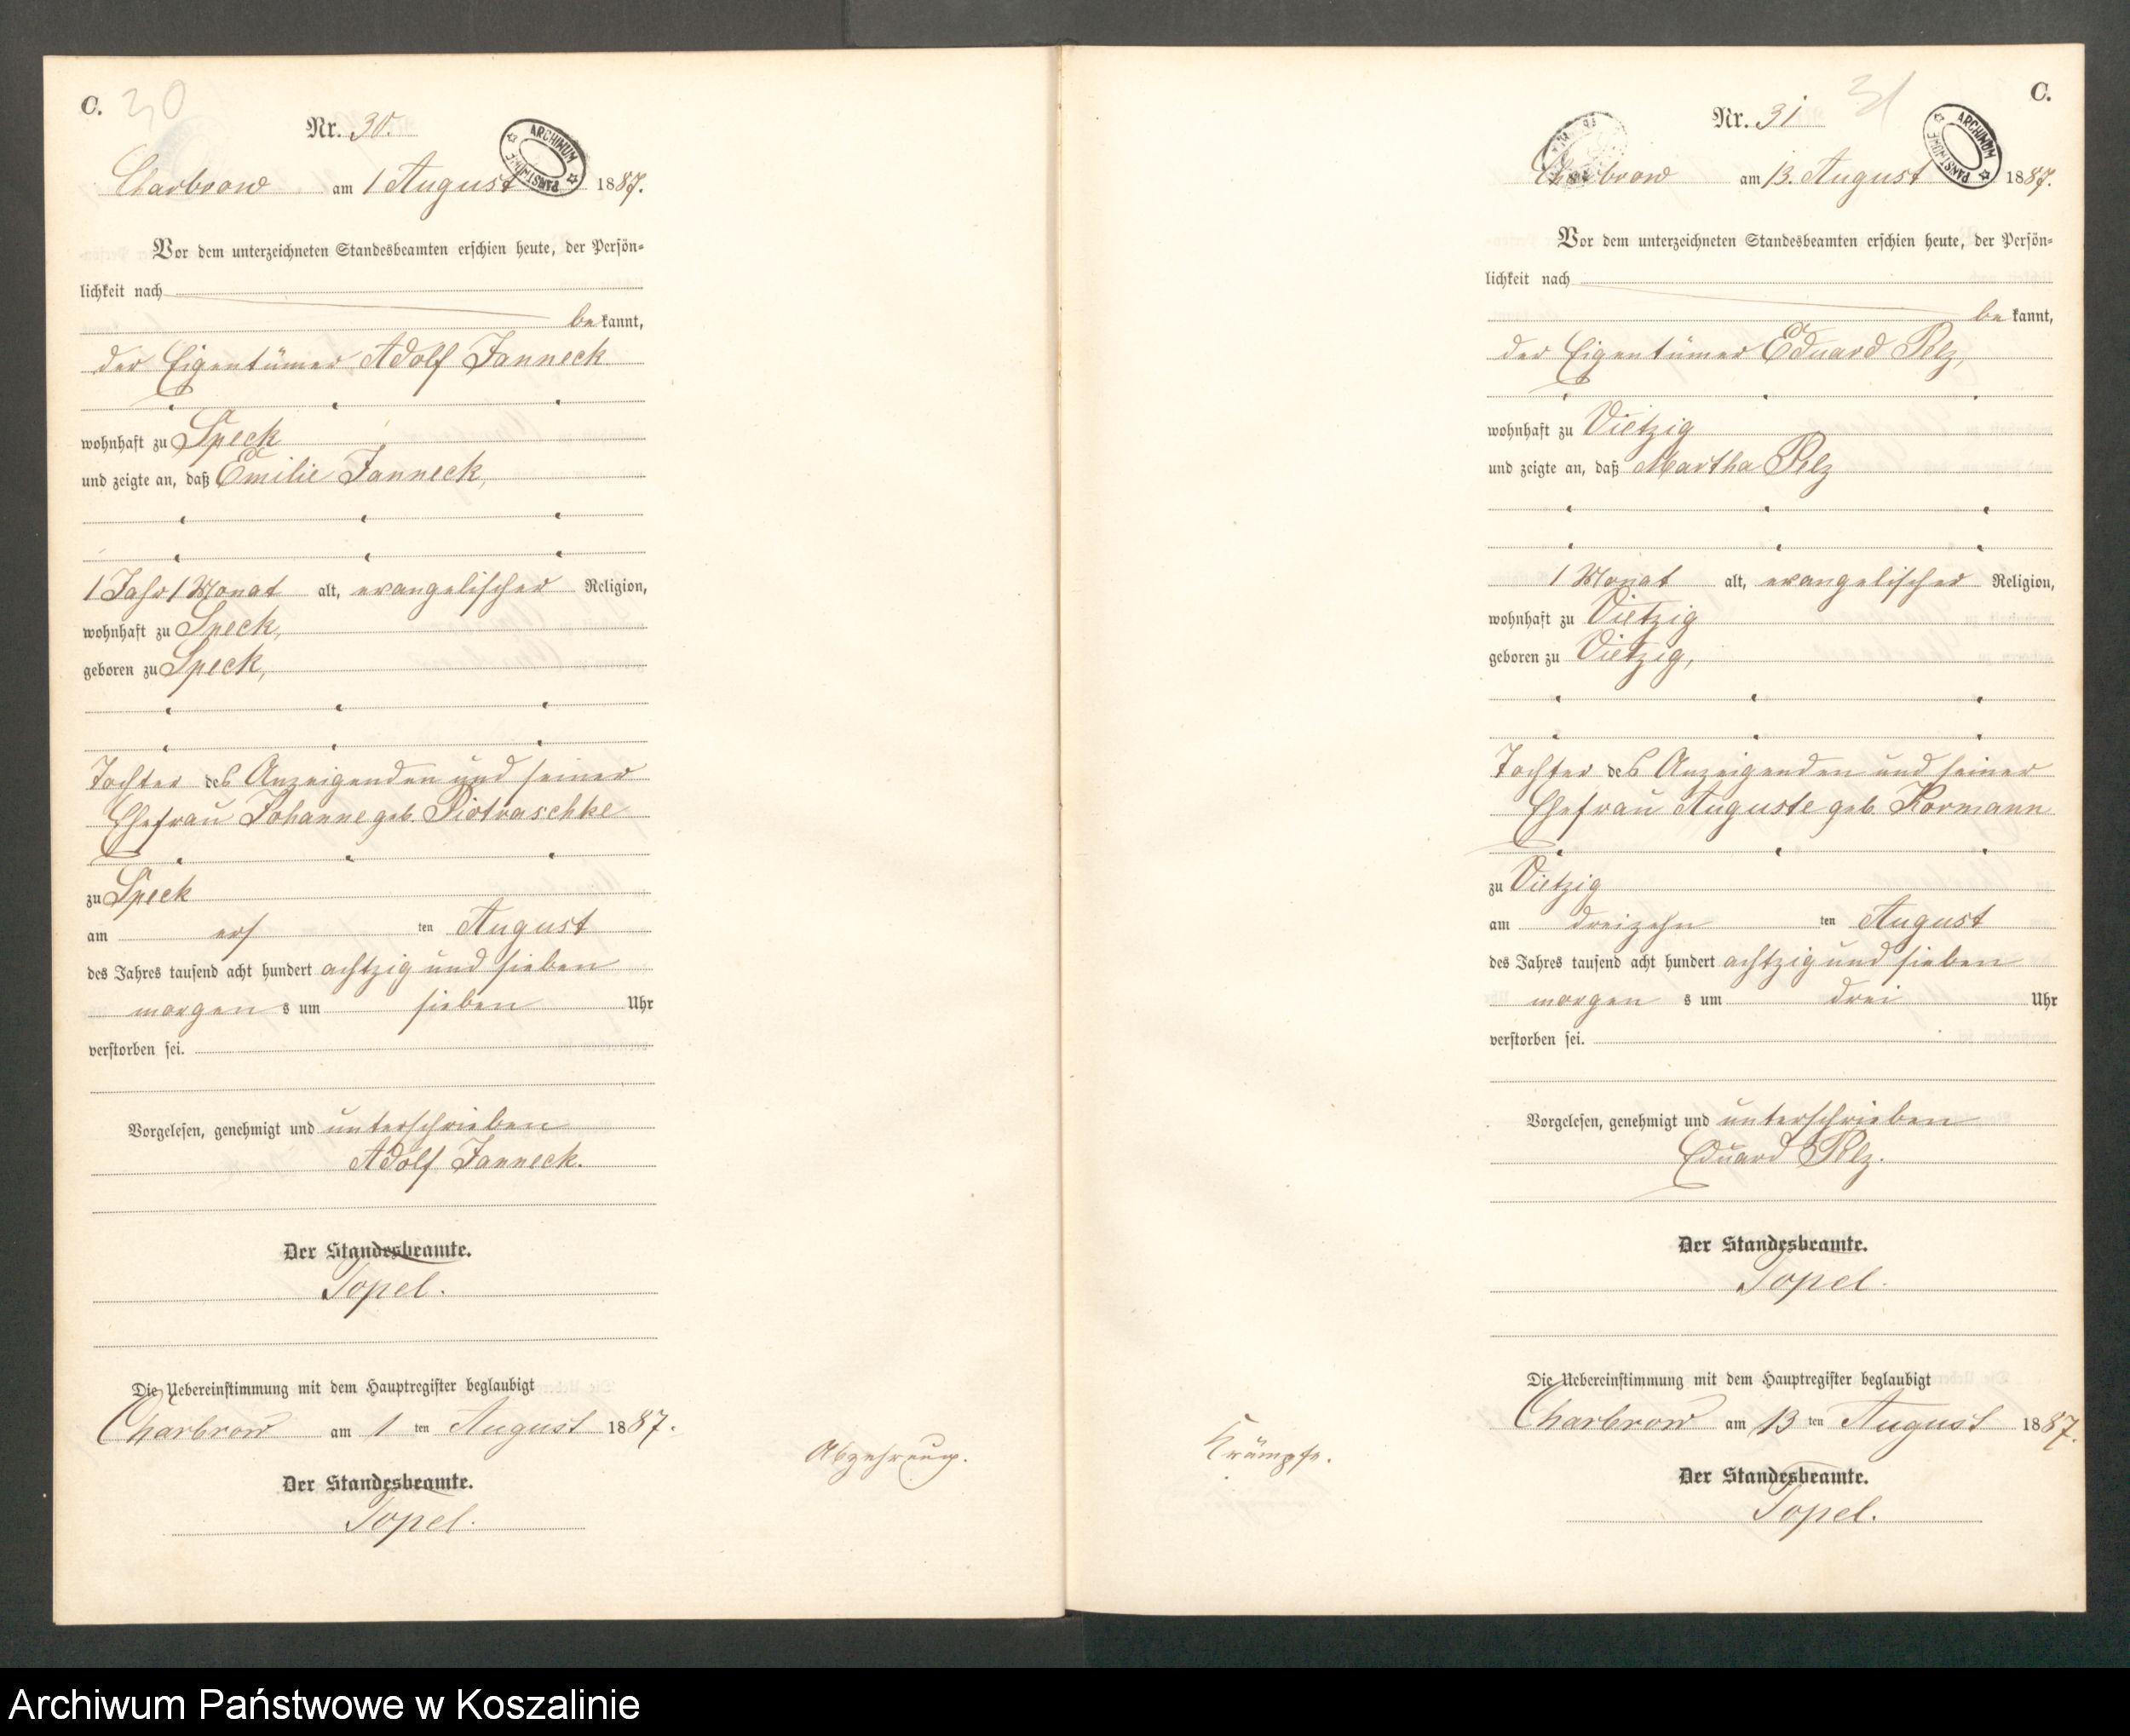 C. 30
Nr. 30.
ARCHIWUM PAŃSTWOWE
Charbrow am 1 August 1887.
Vor dem unterzeichneten Standesbeamten erschien heute, der Persön=
lichkeit nach
be kannt,
der Eigentümer Adolf Janneck
wohnhaft zu Speck
und zeigte an, daß Emilie Janneck,
1 Jahr 1 Monat alt, evangelischer Religion,
wohnhaft zu Speck,
geboren zu Speck,
Tochter des Anzeigenden und seiner
Ehefrau Johanne geb. Piotraschke
zu Speck
am ers ten August
des Jahres tausend acht hundert achtzig und sieben
morgen s um sieben Uhr
verstorben sei.
Vorgelesen, genehmigt und unterschrieben
Adolf Janneck.
Der Standesbeamte.
Topel.
Die Uebereinstimmung mit dem Hauptregister beglaubigt
Charbrow am 1 ten August 1887.
Der Standesbeamte.
Topel.
Abzehrung.
31 C.
Nr. 31
ARCHIWUM PAŃSTWOWE
Charbrow am 13. August 1887.
Vor dem unterzeichneten Standesbeamten erschien heute, der Persön=
lichkeit nach
be kannt,
der Eigentümer Eduard Pelz,
wohnhaft zu Vietzig
und zeigte an, daß Martha Pelz
1 Monat alt, evangelischer Religion,
wohnhaft zu Vietzig
geboren zu Vietzig,
Tochter des Anzeigenden und seiner
Ehefrau Auguste geb. Kormann
zu Vietzig
am dreizehn ten August
des Jahres tausend acht hundert achtzig und sieben
morgen s um drei Uhr
verstorben sei.
Vorgelesen, genehmigt und unterschrieben
Eduard Pelz.
Der Standesbeamte.
Topel.
Die Uebereinstimmung mit dem Hauptregister beglaubigt
Charbrow am 13 ten August 1887.
Der Standesbeamte.
Topel.
Krämpfe.
Archiwum Państwowe w Koszalinie